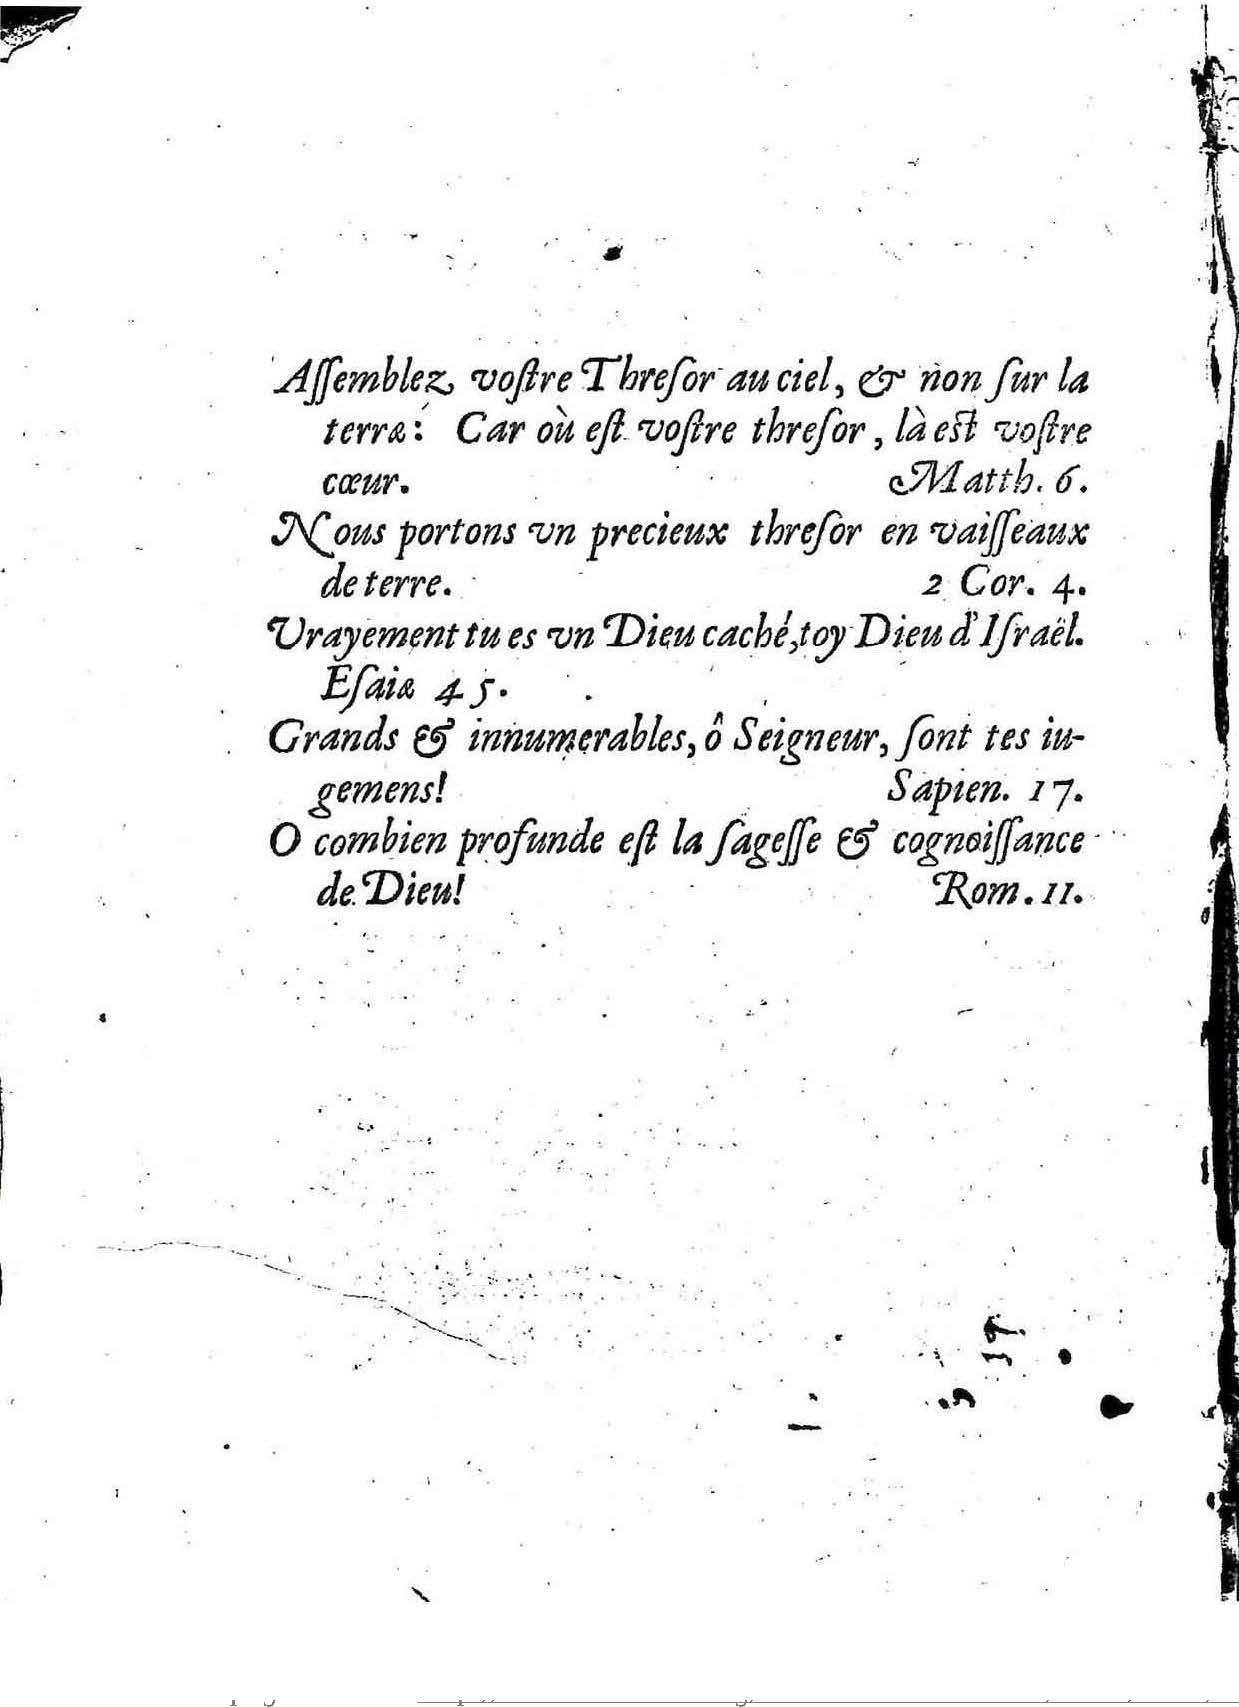 Aſſemblez voſtre Threſor au ciel, & non ſur la
terre: Car où eſt voſtre threſor, là eſt voſtre
cœur. Matth. 6.
Nous portons vn precieux threſor en vaiſſeaux
de terre. 2 Cor. 4.
Vrayement tu es vn Dieu caché, toy Dieu d'Iſraël.
Eſaie 45.
Grands & innumerables, ô Seigneur, ſont tes iu-
gemens! Sapien. 17.
O combien profunde eſt la ſageſſe & cognoiſſance
de Dieu! Rom. 11.